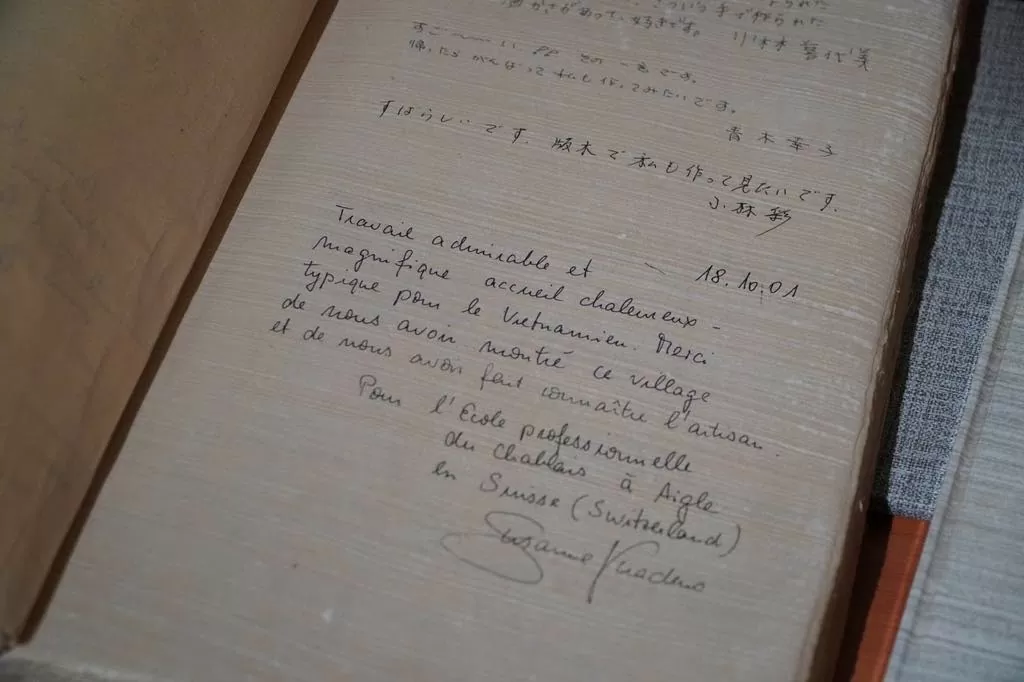 こういう手で作られた
があって、好きです。
すご〜〜い その一言です。
帰ったら がんばって 私も作ってみたいです。
青木幸子
すばらしいです. 版木で私も作って見たいです.
小林彩
18.10.01
Travail admirable et
magnifique accueil chaleureux -
typique pour le Vietnamien. Merci
de nous avoir montré ce village
et de nous avoir fait connaître l'artisan.
Pour l'Ecole professionnelle
du Chablais à Aigle
en Suisse (Switzerland)
Suzanne